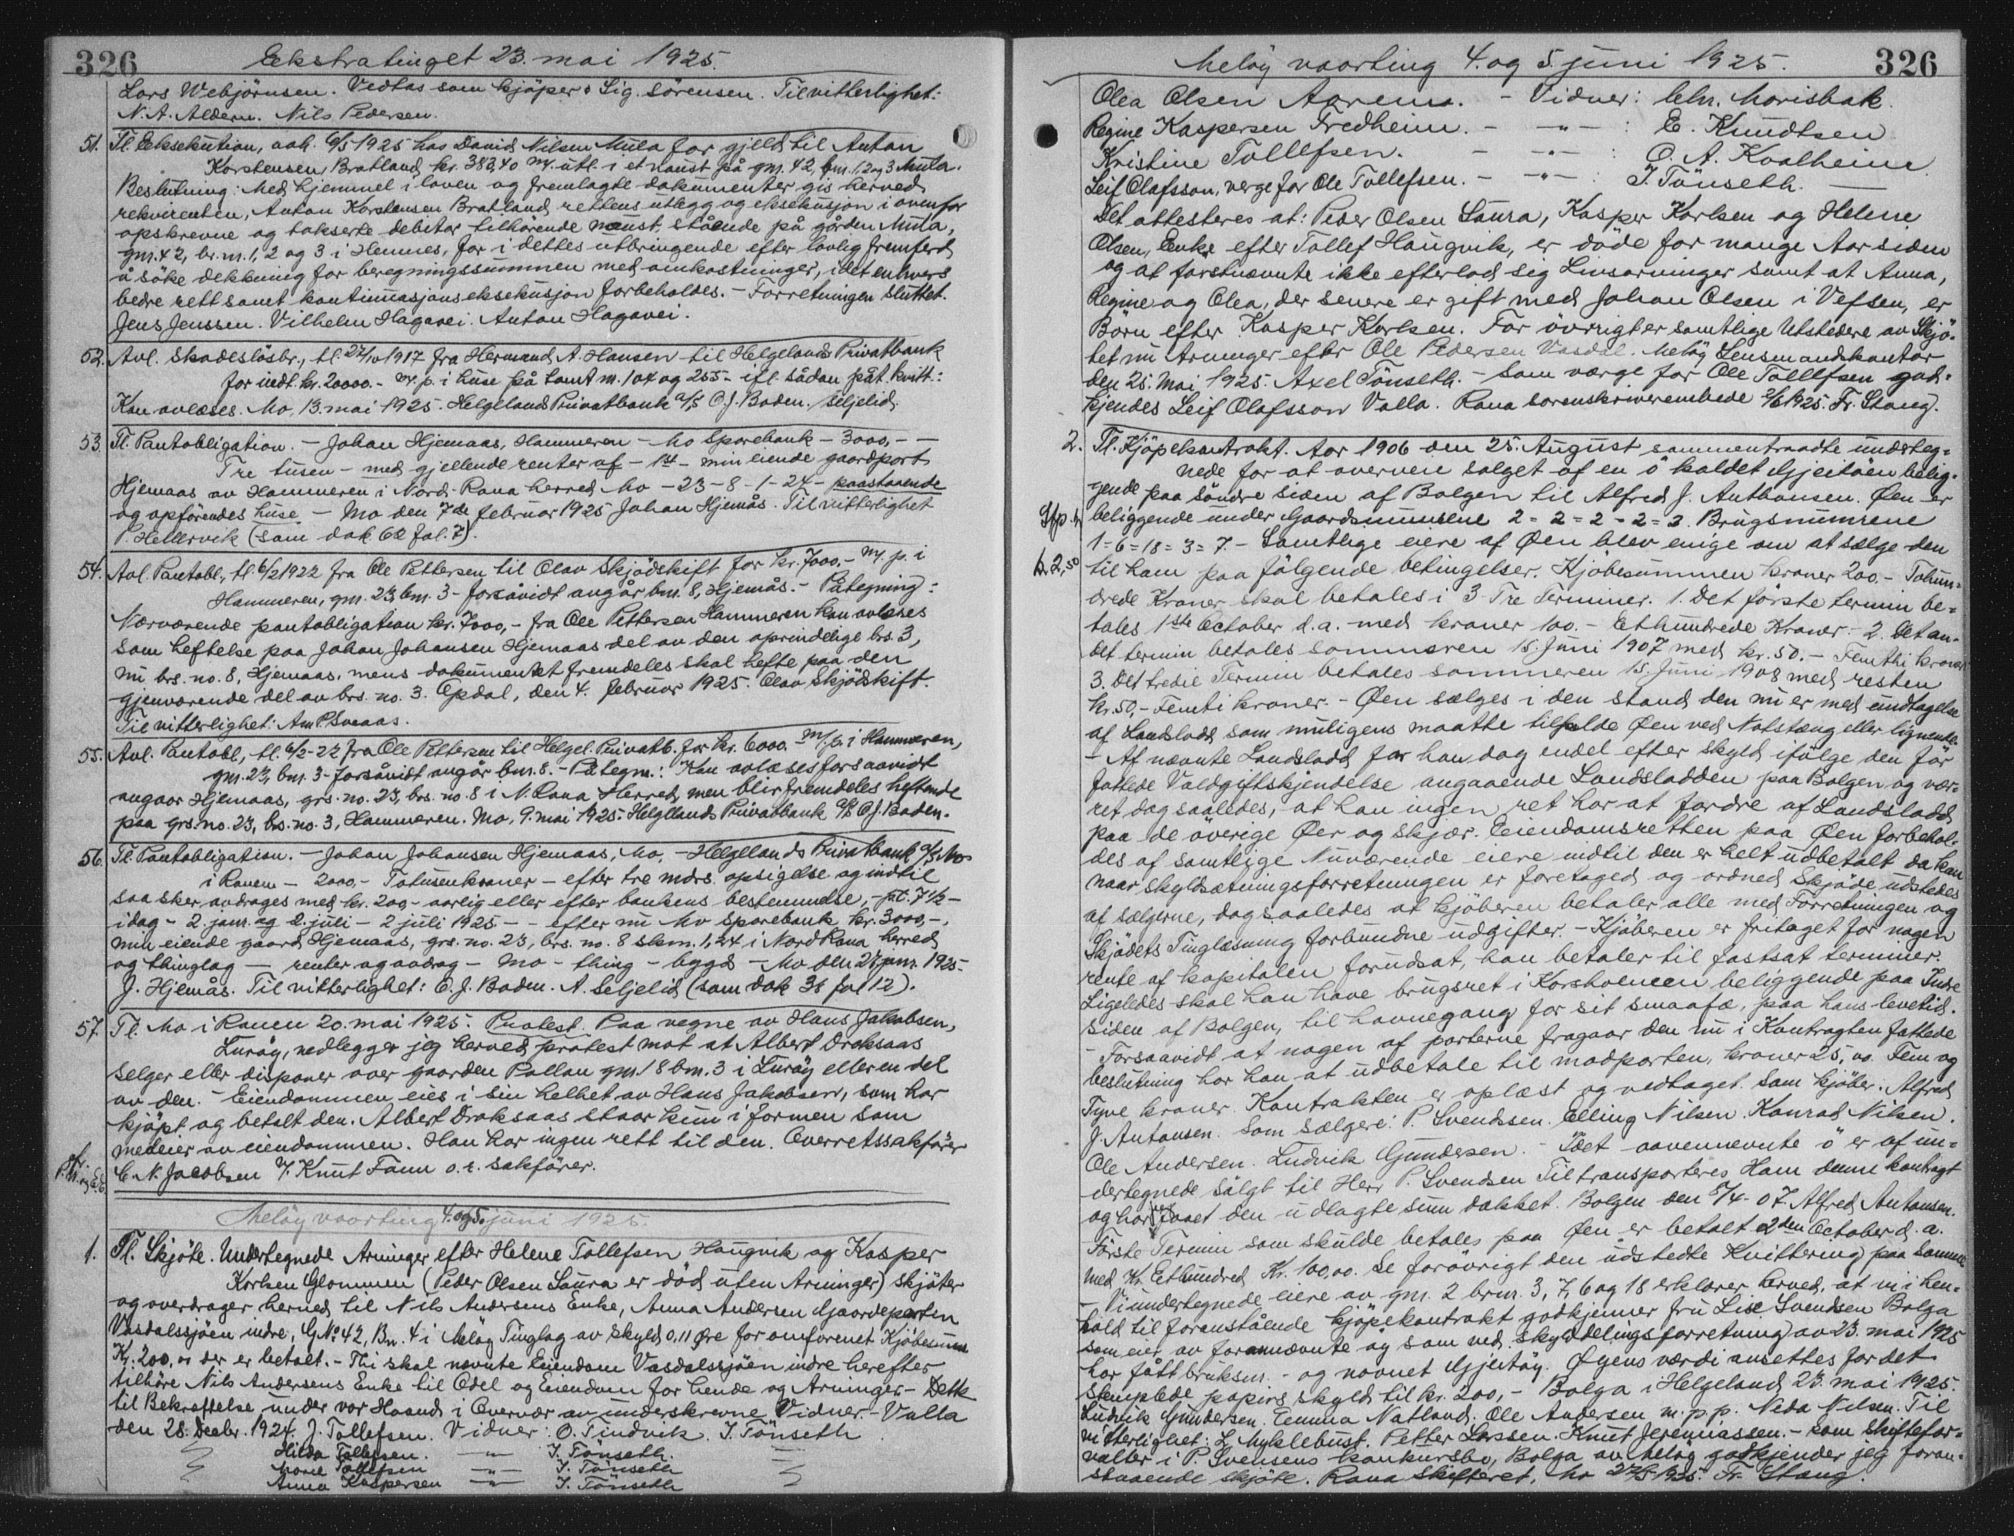 326
Ekstratinget 23. mai 1925.
Lars Webjörnsen. Vedtas som kjöper: Sig. Sörensen. Til vitterlighet:
N. A. Aldern. Nils Pedersen.
51. Tl. Eksekution, avh. 6/5 1925 hos David Nilsen Mula for gjeld til Anton
Korstensen, Bratland, kr. 383,40 m. utl. i et naust på gm. 42, bm. 1, 2 og 3 Mula.
Beslutning: Med hjemmel i loven og fremlagte dokumenter gis herved
rekvirenten, Anton Korstensen Bratland, rettens utlegg og eksekusjon i ovenfor
opskrevne og takserte debitor tilhörende naust, stående på gården Mula,
gm. 42, br. m. 1, 2 og 3 i Hemnes, for i dettes utbringende efter lovlig fremferd
å söke dekkning for beregningssummen med omkostninger, idet enhvers
bedre rett samt kontinuasjonseksekusjon forbeholdes. - Forretningen sluttet.
Jens Jenssen. Vilhelm Hagavei. Anton Hagavei.
52. Avl. Skadeslösbr., tl. 27/10 1917 fra Hermand A. Hansen til Helgelands Privatbank
for indt. kr. 20000.- m. p. i huse på tomt m. 104 og 255 - ifl. sådan påt. kvitt.:
Kan avlæses. Mo, 13. mai 1925. Helgelands Privatbank A/S O. J. Boden. Seljelid.
53. Tl. Pantobligation. - Johan Hjemaas, Hammeren - Mo Sparebank - 3000,- -
Tre tusen - med gjellende renter af - 1st - min eiende gaardpart
Hjemaas av Hammeren i Nord-Rana herred Mo - 23 - 8 - 1 - 24 - paastaaende
og opförendes huse - Mo den 7de februar 1925 Johan Hjemås. Til vitterlighet
P. Hellervik (som dok 62 fol. 7).
54. Avl. Pantobl., tl. 6/2 1922 fra Ole Pettersen til Olav Skjödskift for kr. 7000,- m. p. i
Hammeren, gm. 23, bm. 3 - forsåvidt angår bm. 8, Hjemås. - Påtegning:
Nærværende pantobligation kr. 7000,- fra Ole Pettersen Hammeren kan avlæses
som heftelse paa Johan Johansen Hjemaas del av den oprindelige brs. 3,
nu brs. no. 8, Hjemaas, mens dokumentet fremdeles skal hefte paa den
gjenværende del av brs. no. 3. Opdal, den 4. februar 1925. Olav Skjödskift.
Til vitterlighet: Am P. Svraas.
55. Avl. Pantobl., tl. 6/2-22 fra Ole Pettersen til Helgel. Privatb. for kr. 6000.- m. p. i Hammeren,
gm. 23, bm. 3 - forsåvidt angår bm. 8. - Påtegn.: Kan avlæses forsaavidt
angaar Hjemaas, grs. no. 23, brs. no. 8 i N. Rana Herred, men blir fremdeles heftende
paa grs. no. 23, brs. no. 3, Hammeren. Mo, 9. mai 1925. Helgelands Privatbank A/S O. J. Boden.
56. Tl. Pantobligation. - Johan Johansen Hjemaas, Mo, - Helgelands Privatbank A/S Mo
i Ranen - 2000,- Totusenkroner - efter tre mdrs. opsigelse og indtil
saa sker avdrages med kr. 200,- aarlig eller efter bankens bestemmelse, - pct. 7 1/2 -
idag - 2 jan. og 2. juli - 2 juli 1925 - - efter nu Mo Sparebank kr. 3000,-,
min eiende gaard Hjemaas, grs. no. 23, brs. no. 8 skm. 1,24 i Nord Rana herred
og thinglag - renter og avdrag - Mo - thing - bygd - Mo den 27 jan. 1925.
J. Hjemås. Til vitterlighet: O. J. Boden. A. Seljelid (som dok 31 fol 12).
57. Tl. Mo i Ranen 20. mai 1925. Protest. Paa vegne av Hans Jakobsen,
Luröy, nedlegger jeg herved protest mot at Albert Draksaas
selger eller disponer over gaarden Pollen gm. 18 bm. 3 i Luröy eller en del
av den. - Eiendommen eies i sin helhet av Hans Jakobsen, som har
kjöpt og betalt den. Albert Draksaas staar kun i formen som
medeier av eiendommen. Han har ingen rett til den. Overretssakförer
C. N. Jacobsen v. Knut Fann o. r. sakförer.
Melöy vaarting 4. og 5. juni 1925.
1. Tl. Skjöte. Undertegnede Arvinger efter Helene Tollefsen Haugvik og Kasper
Karlsen Glommen (Peder Olsen Saura er död uten Arvinger) skjöter
og overdrager herved til Nils Andersens Enke, Anna Andersen Gjaardeparten
Vasdalssjöen indre, GNo 42, Bn. 4 i Melöy Tinglag av skyld 0,11 Øre for omforenet Kjöbesum
Kr. 200,00 der er betalt. - Thi skal nævnte Eiendom Vasdalssjöen indre herefter
tilhöre Nils Andersens Enke til Odel og Eiendom for hende og Arvinger. - Dette
til Bekræftelse under vor Haand i Overvær av underskrevne Vidner. - Valla
den 28. Decbr. 1924. J. Tollefsen. Vidner: O. Tindvik. J. Tönseth
Hilda Tollefsen. - " - J. Tönseth.
Marie Tollefsen - " - J. Tönseth
Anna Kaspersen - " - J. Tönseth
Melöy vaarting 4. og 5. juni 1925.
326
Olea Olsen Aaremo. - Vidner: Chr. Marisbak.
Regine Kaspersen Fredheim. - " - : E. Knudtsen
Kristine Tollefsen. - " - : O. A. Kvalheim
Leif Olafsson, verge for Ole Tollefsen. - " - : J. Tönseth.
Det attesteres at: Peder Olsen Saura, Kasper Karlsen og Helene
Olsen, Enke efter Tollef Haugvik, er döde for mange Aar siden
og at förstnævnte ikke efterlod sig Livsarvinger samt at Anna,
Regine og Olea, der senere er gift med Johan Olsen i Vefsen, er
Börn efter Kasper Karlsen. For övrigt er samtlige Utstedere av Skjö-
tet nu Arvinger efter Ole Pedersen Vasdal. Melöy Lensmandskontor
den 25. Mai 1925. Axel Tönseth. - Som værge for Ole Tollefsen god-
kjendes Leif Olafsson Valla. Rana sorenskriverembede 2/6 1925. Fr. Stang.
2. Tl. Kjöpekontrakt. Aar 1906 den 25. August sammentraadte underteg-
nede for at overveie salget af en ö kaldet Gjeitöen belig-
gende paa söndre siden af Bolgen til Alfred J. Anthonsen. Øen er
beliggende under Gaardsnumrene 2 = 2 = 2 - 2 = 2. Brugsnumrene
1 = 6 = 18 = 3 = 7. - Samtlige eiere af Øen blev enige om at sælge den
b. 2,50
til ham paa fölgende betingelser. Kjöbesummen kroner 200.- Tohun-
drede Kroner skal betales i 3 Tre Terminer. 1. Det förste termin be-
tales 1ste October d. a. med kroner 100.- Ethundrede Kroner. - 2. Det an-
det termin betales sommeren 15. Juni 1907 med kr. 50.- Femti kroner
3. Det tredie Termin betales sommeren 15. Juni 1908 med resten
kr. 50,- Femti kroner. - Øen sælges i den stand den nu er med undtagelse
af Landslodd som muligens maatte tilfalde Øen ved Notstæng eller lignende.
- Af nævnte Landslodd får han dog endel efter skyld ifölge den för
fattede Voldgiftskjendelse angaaende Landslodden paa Bolgen og vær-
ret dog saaledes, at han ingen ret har at fordre af Landslodd
paa de överige Øer og skjær. Eiendomsretten paa Øen forbehol-
des af samtlige Nuværende eiere indtil den er helt udbetalt da kan
naar skyldsætningsforretningen er foretaged og ordned Skjöde udstedes
af sælgerne, dog saaledes at kjöberen betaler alle med Forretningen og
Skjödets Tinglæsning forbundne udgifter. - Kjöberen er fritaget for nogen
rente af kapitalen forudsat, han betaler til fastsat terminer.
Ligeledes skal han have brugsret i Korsholmen beliggende paa Indre
siden af Bolgen, til havnegang for sit smaafæ, paa hans levetid.
- Forsaavidt at nogen af parterne fragaar den nu i Kontragten fattede
beslutning har han at udbetale til modparten, kroner 25,00. Fem og
Tyve kroner. Kontrakten er oplæst og vedtaget. Som kjöber. Alfred
J. Antonsen. Som sælgere: P. Svendsen. Elling Nilsen. Konrad Nilsen.
Ole Andersen. Ludvik Gundersen. - Idet ovennævnte ö er af un-
dertegnede sålgt til Herr P. Svendsen Til transporteres Ham denne kontragt
og har faaet den udlagte sum dækket. Bolgen den 7/4 - 07. Alfred Antonsen.
Förste Termin som skulde betales paa Øen er betalt 2den October d. a.
med Kr. Ethundred Kr. 100,00. Se forövrigt den udstedte Kvittering paa samme
- Vi undertegnede eiere av gm. 2 brm. 3, 7, 6 og 18 erklærer herved, at vi i hen-
hold til foranstående kjöpekontrakt godkjenner fru Lise Svendsen Bolga
som eier av forannævnte öy som ved skylddelingsforretning av 23. mai 1925
har fått bruksnr. - og navnet Gjeitöy. Øyens værdi ansettes for det
stemplede papirs skyld til kr. 200,- Bolga i Helgeland 23. mai 1925.
Ludvik Gundersen. Emma Natland. Ole Andersen m. p. p. Nida Nilsen. Til
vitterlighet: L. Myklebust. Petter Larssen. Knut Jeremiassen. - Som Skiftefor-
valter i P. Svensens konkursbo, Bolga av Melöy godkjender jeg foran-
staaende skjöte. Rana Skifteret, Mo 27/5 1925. Fr. Stang.